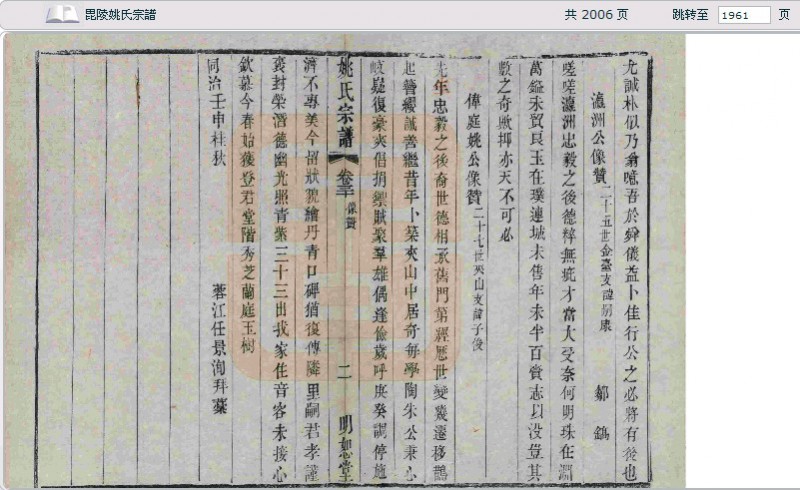 毘陵姚氏宗譜 共 2006 页 跳转至 1961 页
尤誠朴似乃翁噫吾於舜儀益卜佳行公之必將有後也
瀛洲公像贊 二十五世金臺支諱康 鄒 鎬
嗟嗟瀛洲忠毅之後德粹無疵才當大受奈何明珠在淵
萬鎰未貿艮玉在璞連城未售年未半百賫志以没豈其
數之奇歟抑亦天不可必
偉庭姚公像贊 二十七世夾山支諱子俊
先年忠毅之後裔世德相承舊門第經歷世變幾遷移鵲
起簪纓誠善繼昔年卜築夾山中居奇每學陶朱公秉心
岐嶷復豪爽倡捐禦賊聚羣雄偶逢儉歲呼庚癸調停施
姚氏宗譜 卷 像贊 二 明恕堂
濟不專美今留狀貌繪丹青口碑猶復傳隣里嗣君孝謹
襃封榮潛德幽光照青紫三十三出我家住音容未接心
欽慕今春始獲登君堂階秀芝蘭庭玉樹
同治壬申桂秋 蓉江任景洵拜藁